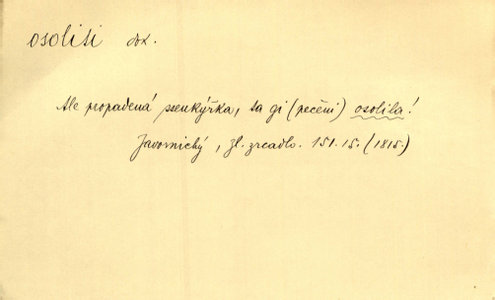 osoliti dok.
Ale propadená ssenkýřka, ta gi (pečéni) osolila!
Javornický, Zl. zrcadlo. 151.15. (1815.)